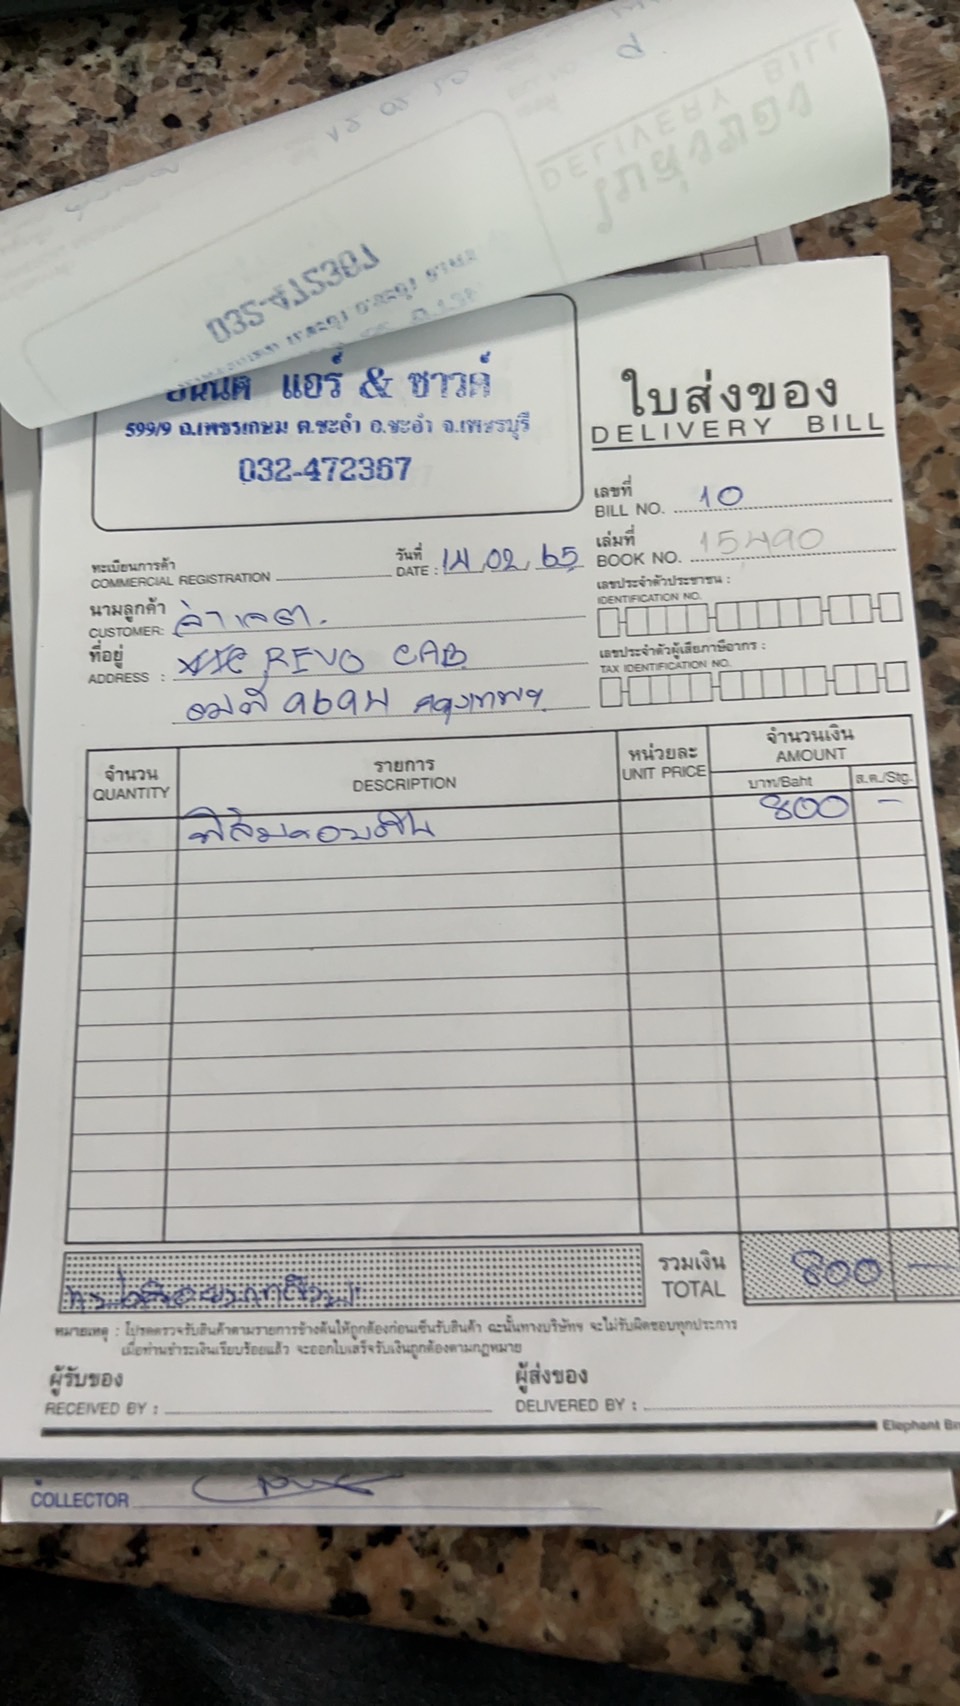 DELIVERY BILL
แอร์ & ซาวด์
599/9 ถ.เพชรเกษม ต.ชะอำ อ.ชะอำ จ.เพชรบุรี
032-472367
ใบส่งของ
DELIVERY BILL
เลขที่
BILL NO. 10
เล่มที่
BOOK NO. 15490
ทะเบียนการค้า
COMMERCIAL REGISTRATION
วันที่
DATE : 14 02 65
เลขประจำตัวประชาชน :
IDENTIFICATION NO.
นามลูกค้า
CUSTOMER:
ที่อยู่
ADDRESS : REVO CAB
กรุงเทพฯ
เลขประจำตัวผู้เสียภาษีอากร :
TAX IDENTIFICATION NO.
จำนวน
QUANTITY
รายการ
DESCRIPTION
หน่วยละ
UNIT PRICE
จำนวนเงิน
AMOUNT
บาท/Baht
ส.ต./Stg.
800 -
รวมเงิน
TOTAL
800 -
หมายเหตุ : โปรดตรวจรับสินค้าตามรายการข้างต้นให้ถูกต้องก่อนเซ็นรับสินค้า ฉะนั้นทางบริษัทฯ จะไม่รับผิดชอบทุกประการ
เมื่อท่านชำระเงินเรียบร้อยแล้ว จะออกใบเสร็จรับเงินถูกต้องตามกฎหมาย
ผู้รับของ
RECEIVED BY :
ผู้ส่งของ
DELIVERED BY :
Elephant
COLLECTOR